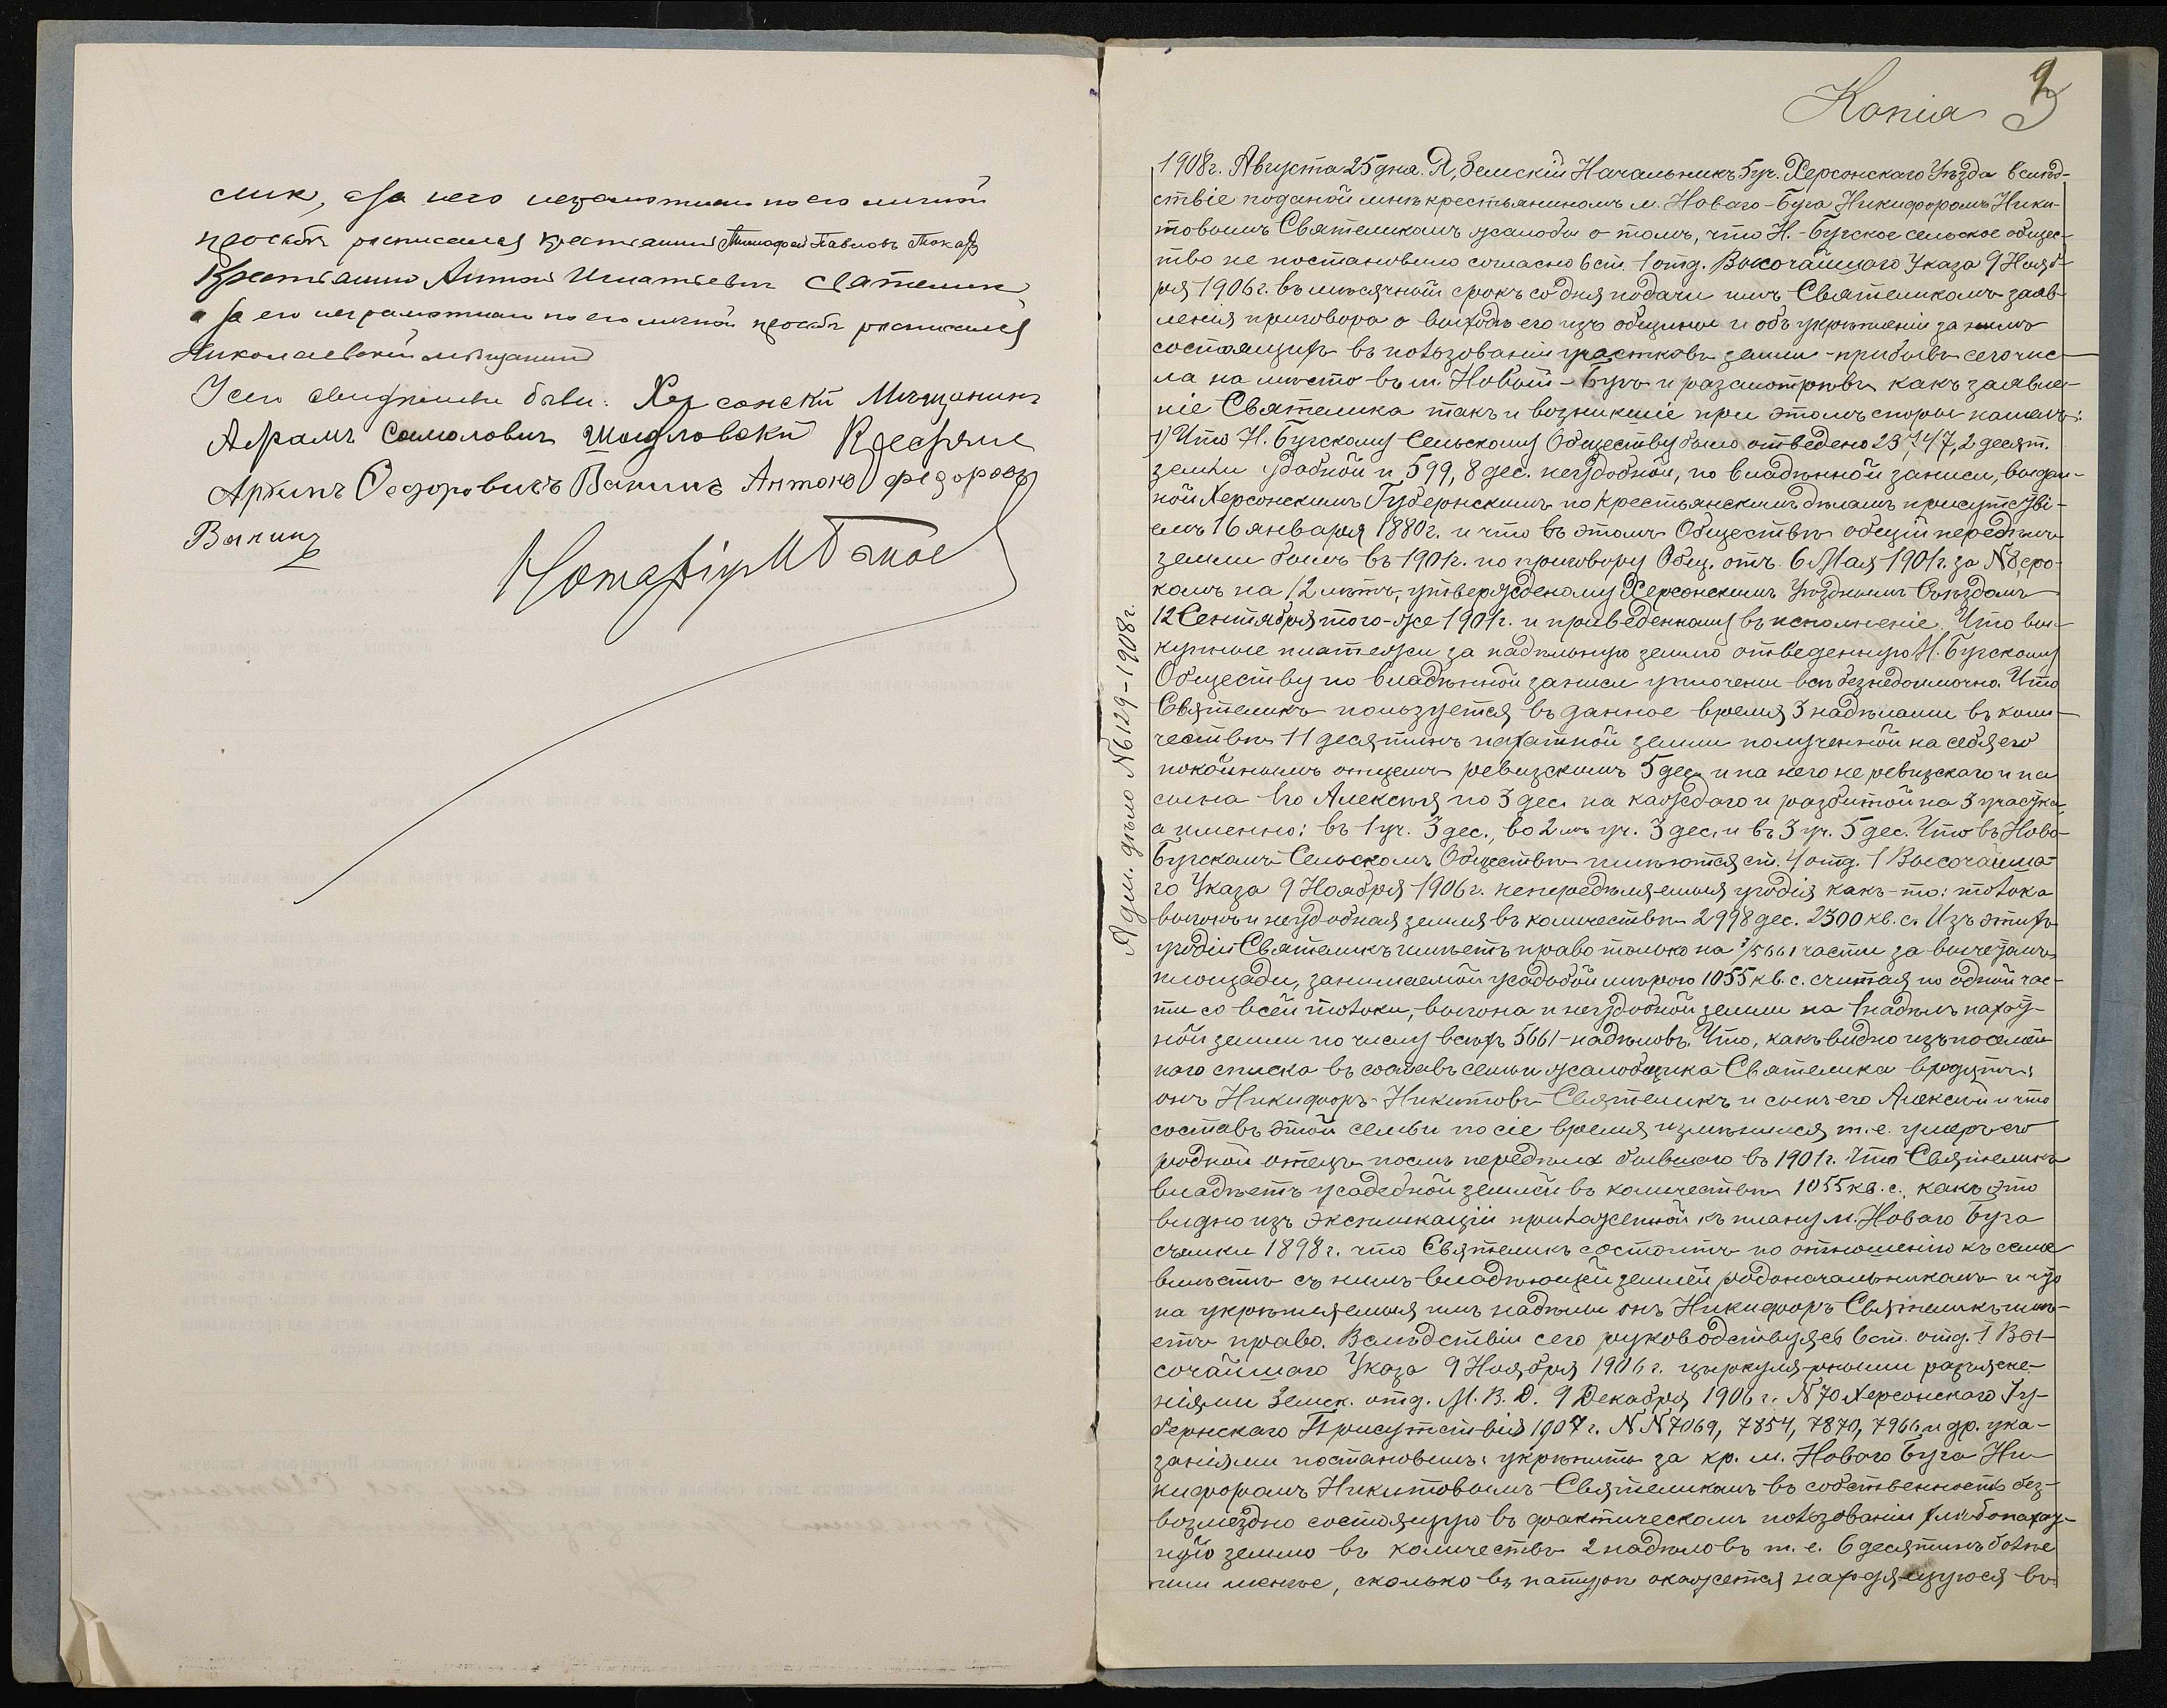 слик, а за него неграмотнаго по его личной
просьбѣ росписался крестьянинъ Тимофей Павловъ Токарь
Крестьянинъ Антонъ Игнатьевич Святеликъ,
а за его неграмотнаго по его личной просьбѣ росписался
Николаевскій мѣщанинъ
У сего свидѣтелями были: Херсонскій Мѣщанинъ
Абрамъ Самоловичъ Шидловскій Крестьяне
Архипъ Федоровичъ Ванинъ Антонъ Федоровъ
Ванинъ
Нотаріусъ
Копія
9
Адм. дѣло № 6129 - 1908 г.
1908 г. Августа 25 дня. Я, Земскій Начальникъ 5 уч. Херсонскаго Уѣзда вслѣд-
ствіе поданой мнѣ крестьяниномъ м. Новаго-Буга Никифоромъ Ники-
товымъ Святеликомъ жалобы о томъ, что Н.-Бугское сельское общес-
тво не постановило согласно 6 ст. 1 отд. Высочайшаго Указа 9 Нояб-
ря 1906 г. въ мѣсячный срокъ со дня подачи имъ Святеликомъ заяв-
ленія приговора о выходѣ его изъ общины и объ укрѣпленіи за нимъ
состоящихъ въ пользованіи участковъ земли - прибывъ сего чис-
ла на мѣсто въ м. Новый-Бугъ и разсмотрѣвъ какъ заявле-
ніе Святелика такъ и возникшіе при этомъ споры нашелъ:
1) Что Н. Бугскому Сельскому Обществу было отведено 23,747,2 десят.
земли удобной и 599,8 дес. неудобной, по владѣнной записи, выдан-
ной Херсонскимъ Губернскимъ по Крестьянскимъ дѣламъ присутстві-
емъ 16 января 1880 г. и что въ этомъ Обществѣ общій передѣлъ
земли былъ въ 1901 г. по приговору Общ. отъ 6 Мая 1901 г. за № 8, сро-
комъ на 12 лѣтъ, утвержденому Херсонскимъ Уѣзднымъ Съѣздомъ
12 Сентября того-же 1901 г. и приведенному въ исполненіе. Что вы-
купные платежи за надѣльную землю отведенную Н. Бугскому
Обществу по владѣнной записи уплочены всѣ безнедоимочно. Что
Святеликъ пользуется въ данное время 3 надѣлами въ коли-
чествѣ 11 десятинъ пахатной земли полученной на себя его
покойнымъ отцемъ ревизскимъ 5 дес. и на него не ревизскаго и на
сына его Алексѣя по 3 дес. на каждаго и разбитой на 3 участка,
а именно: въ 1 уч. 3 дес., во 2 мъ уч. 3 дес. и въ 3 уч. 5 дес. Что въ Ново-
Бугскомъ Сельскомъ Обществѣ имѣются ст. 4 отд. 1 Высочайша-
го Указа 9 Ноября 1906 г. непередѣляемыя угодія какъ-то: толока
выгонъ и неудобная земля въ количествѣ 2998 дес. 2300 кв. с. Изъ этихъ
угодій Святеликъ имѣетъ право только на 3/5661 части за вычетомъ
площади, занимаемой усадьбой мѣрою 1055 кв. с. считая по одной час-
ти со всей толоки, выгона и неудобной земли на 1 надѣлъ пахот-
ной земли по числу всѣхъ 5661 - надѣловъ. Что, какъ видно изъ посемей-
наго списка въ составъ семьи жалобщика Святелика входятъ:
онъ Никифоръ Никитовъ Святеликъ и сынъ его Алексѣй и что
составъ этой семьи по сіе время измѣнился, т. е. умеръ его
родной отецъ послѣ передѣла бывшаго въ 1901 г. Что Святеликъ
владѣетъ усадебной землей въ количествѣ 1055 кв. с., какъ это
видно изъ экспликаціи приложенной къ плану м. Новаго Буга
съемки 1898 г. что Святеликъ состоитъ по отношенію къ семьѣ
вмѣстѣ съ нимъ владѣющей землей родоначальникомъ и что
на укрѣпляемыя имъ надѣлы онъ Никифоръ Святеликъ имѣ-
етъ право. Вслѣдствіи сего руководствуясь 6 ст. отд. I Вы-
сочайшаго Указа 9 Ноября 1906 г. циркулярными разъясне-
ніями Земск. отд. М. В. Д. 9 Декабря 1906 г. № 70 Херсонскаго Гу-
бернскаго Присутствія 1907 г. №№ 7069, 7854, 7870, 7966 и др. ука-
заніями постановилъ: укрѣпить за кр. м. Новаго Буга Ни-
кифоромъ Никитовымъ Святеликомъ въ собственность без-
возмездно состоящую въ фактическомъ пользованіи хлѣбопахат-
ную землю въ количествѣ 2 надѣловъ т. е. 6 десятинъ болѣе
или менѣе, сколько въ натурѣ окажется находящуюся въ